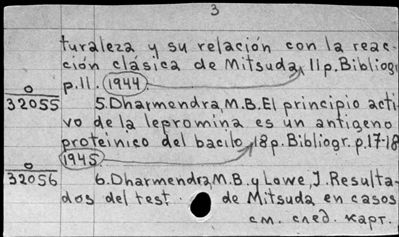 3
turaleza y su relación con la reac-
ción clásica de Mitsuda, 11p. Bibliogr.
p.11. 1944
0
32055 5. Dharmendra, M.B. El principio acti-
vo de la lepromina es un antígeno
proteinico del bacilo, 18p. Bibliogr. p.17-18
1945
0
32056 6. Dharmendra, M.B. y Lowe, J. Resulta-
dos del test de Mitsuda en casos
см. след. карт.